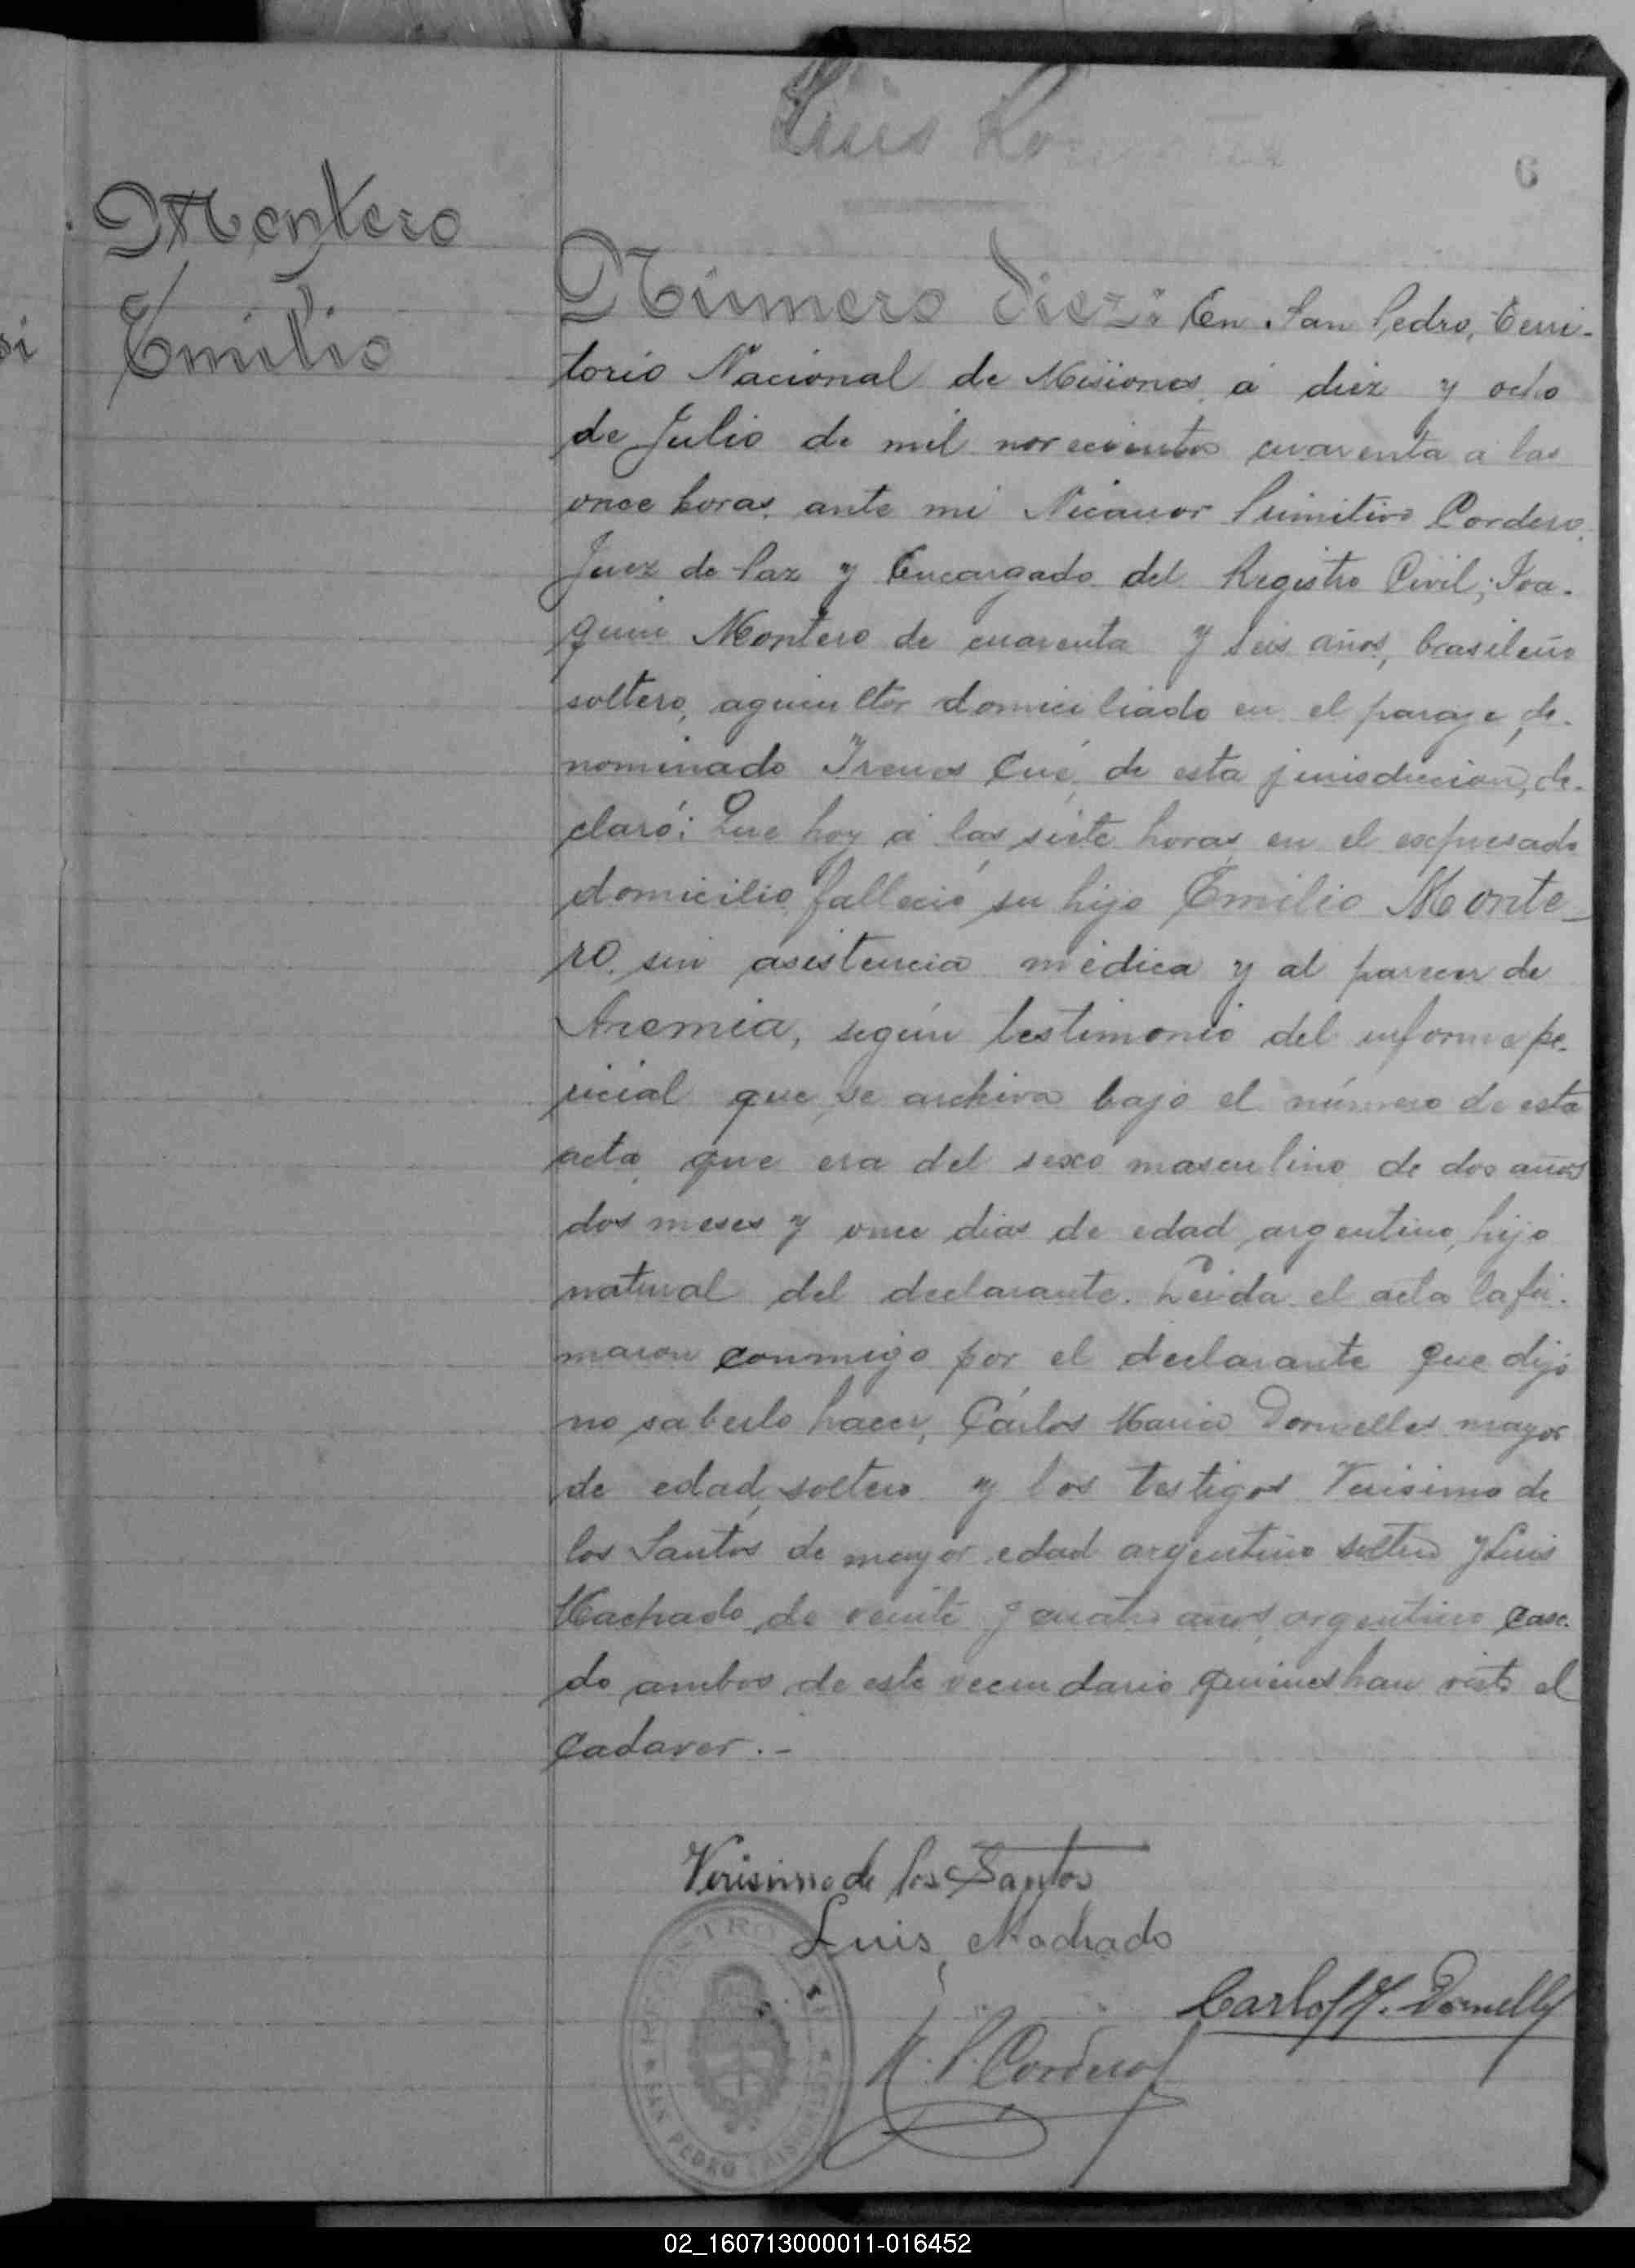 Luis
6
Montero
Emilio
si
Número diez: En San Pedro, Terri-
torio Nacional de Misiones, á diez y ocho
de Julio de mil novecientos cuarenta a las
once horas, ante mi Nicanor Primitivo Cordero,
Juez de Paz y Encargado del Registro Civil; Joa-
quin Montero de cuarenta y seis años, brasileño
soltero, agricultor domiciliado en el paraje, de-
nominado Irenes Cué, de esta jurisdiccion, de-
claró: Que hoy á las siete horas en el expresado
domicilio falleció su hijo Emilio Monte-
ro, sin asistencia médica y al parecer de
Anemia, según testimonio del informe pe-
ricial que se archiva bajo el número de esta
acta, que era del sexo masculino de dos años
dos meses y once dias de edad, argentino, hijo
natural del declarante. Leida el acta la fir-
maron conmigo por el declarante que dijo
no saberlo hacer, Cárlos Maria Dornelles mayor
de edad, soltero y los testigos Verisimo de
los Santos de mayor edad argentino soltero y Luis
Machado de veinte y cuatro años, argentino casa-
do ambos de este vecindario quienes han visto el
cadaver.-
Verisimo de los Santos
Luis Machado
Carlos M. Dornelles
N. P. Cordero
SAN PEDRO (MISIONES)
02_160713000011-016452